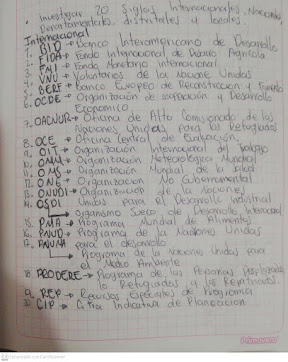 • Investigar 20 Siglas Internacionales, Nacionales
Departamentales, distritales y locales.
Internacional
1. BID → Banco Interamericano de Desarrollo
2. FIDA → Fondo Internacional de Agricola
3. FMI → Fondo Monetario internacional
4. VNU → Voluntarios de la Naciones Unidas
5. BERF → Banco Europeo de Reconstrucion y Fomento
6. OCDE → Organización de cooperación y Desarrollo
Economico
7. OACNUR → Oficina de Alto Comisionado de las
Naciones Unidas para los Refugiados
8. OCE → Oficina Central de Evaluación
9. OIT → Organización Internacional del Trabajo
10. OMM → Organización Meteorologica Mundial
11. OMS → Organización Mundial de la salud
12. ONG → Organizacion No Gubernamental
13. ONUDI → Organizacion de la Naciones
Unidas para el Desarrollo Industrial
14. OSDI
→ Organismo Sueco de Desarrollo Internacional
15. PMA → Programa Mundial de Alimentos
16. PNUD → Programa de la Naciones Unidas
para el desarrollo
17. PNUMA
→ Programa de la Naciones Unidas para
el Medio Ambiente
18. PRODERE → Programa de las Personas Desplazadas,
lo Refugiados y los Repatriados.
19. REP → Recursos Especiales de Programas
20. CIP → Cifra Indicativa de Planeacion
Primavera
Escaneado con CamScanner